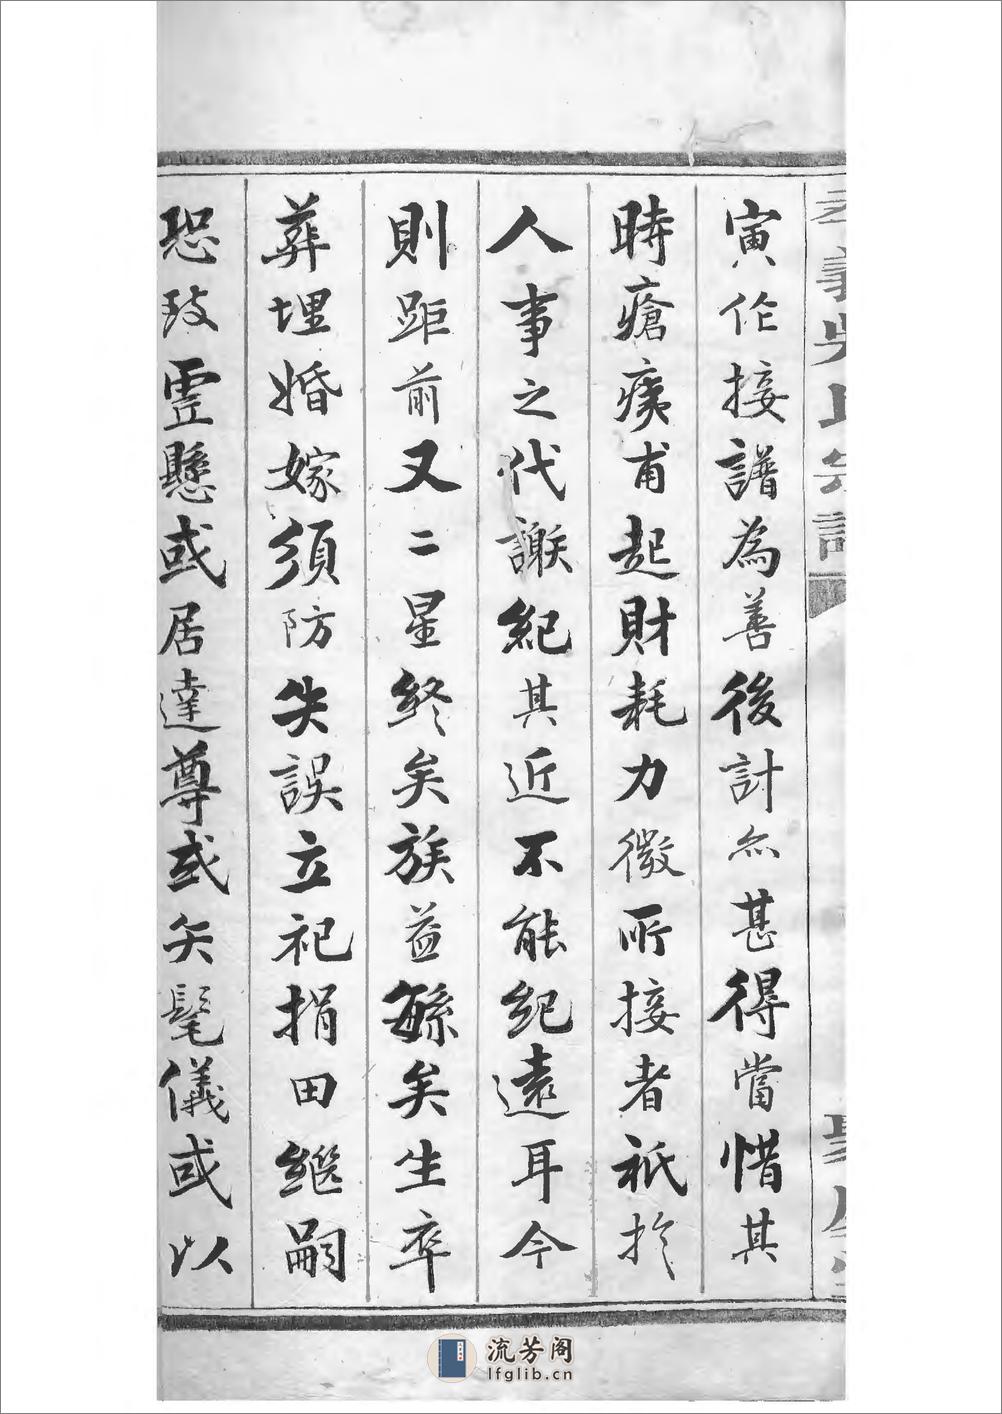 寅作接譜為善後計亦甚得當惜其
時瘡痍甫起財耗力微所接者祇於
人事之代謝紀其近不能紀遠耳今
則距前又二星終矣族益繇矣生卒
葬埋婚嫁須防失誤立祀捐田繼嗣
恐致虛懸或居達尊或矢髦儀或以
流芳阁
lfglib.cn